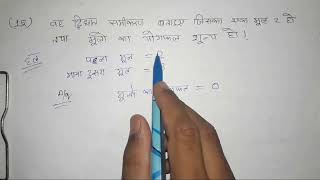 (Q.) वह द्विघात समीकरण बनाइए जिसका एक मूल 2 हो
तथा मूलों का योगफल शून्य हो।
हल पहला मूल =
माना दूसरा मूल =
मूलों का = 0